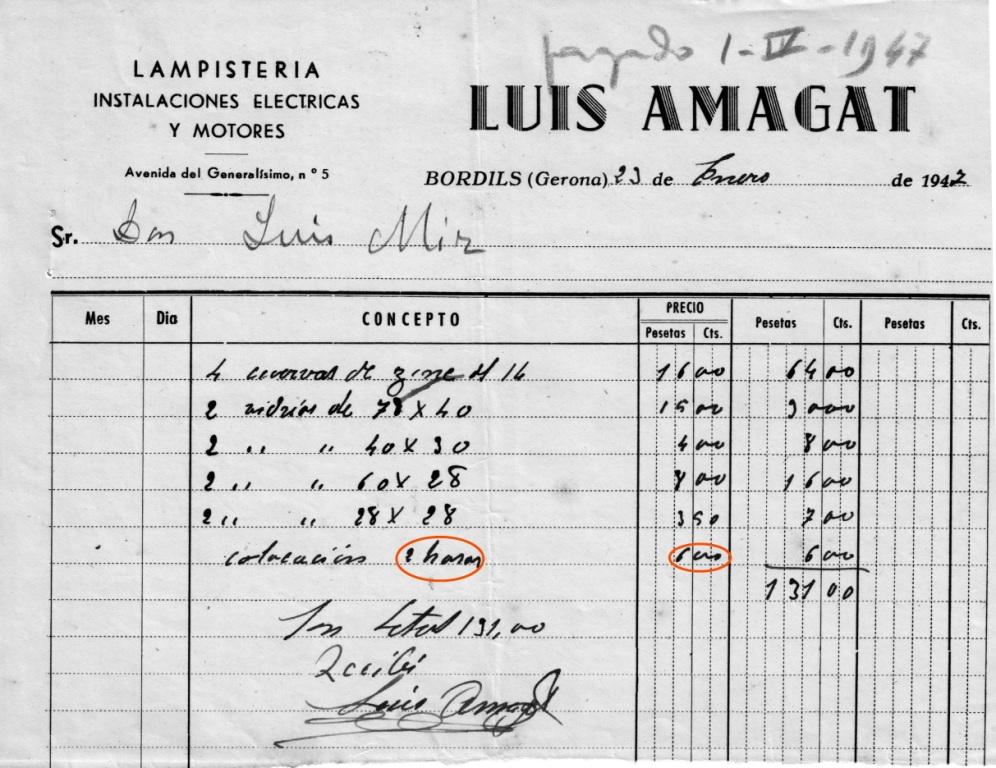 pagado 1-IV-1947
LAMPISTERIA
INSTALACIONES ELECTRICAS
Y MOTORES
Avenida del Generalísimo, n º 5
LUIS AMAGAT
BORDILS (Gerona) 23 de Enero de 1947
Sr. Don Luis Mir
Mes Dia CONCEPTO PRECIO Pesetas Cts. Pesetas Cts. Pesetas Cts.
4 de zinc del 14 16 00 64 00
2 vidrios de 78 X 40 15 00 30 00
2 ,, ,, 40 X 30 4 00 8 00
2 ,, ,, 60 X 28 8 00 16 00
2 ,, ,, 28 X 28 3 50 7 00
colocación 2 horas 6 00 6 00
131 00
Son Ptas 131,00
Recibí
Luis Amagat